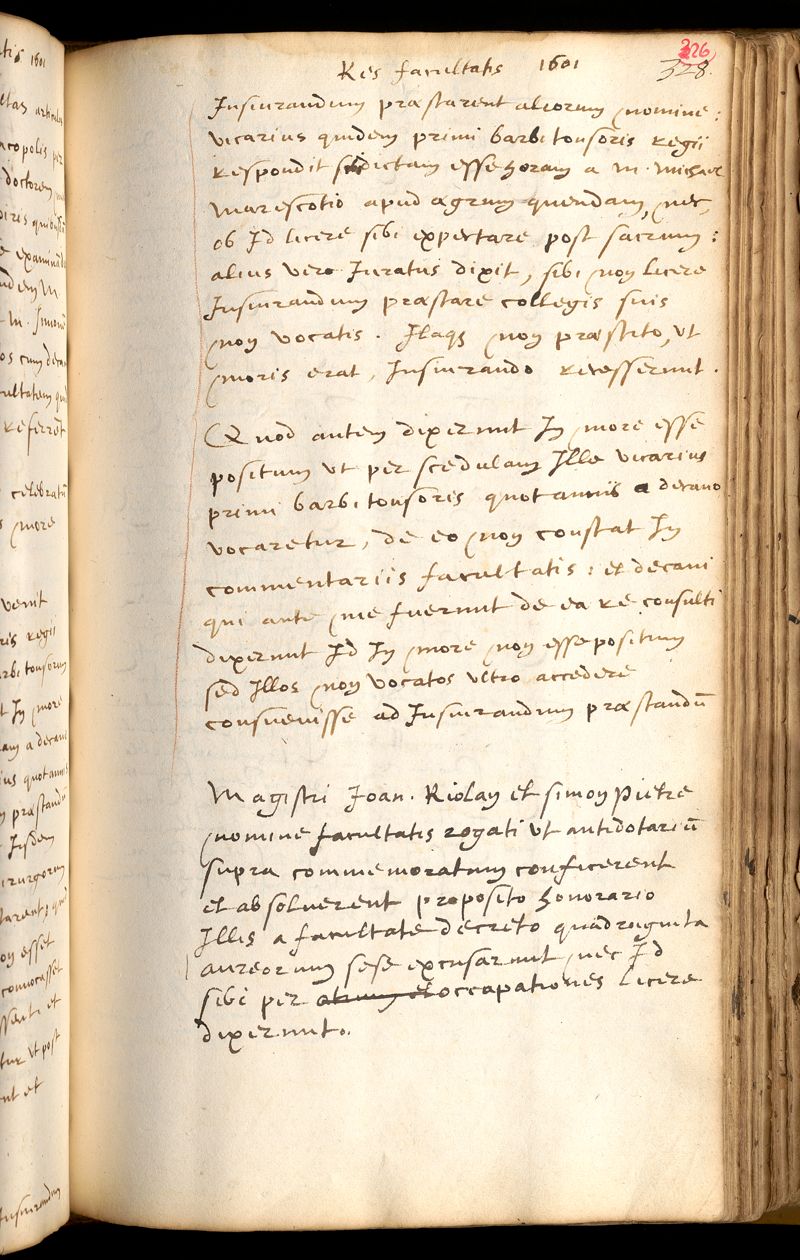 Res facultatis 1601
326
328.
Jusiurandum præstarent aliorum nomine:
vicarius quidem primi barbitonsoris Regii
Respondit sibi dictam esse horam a M. Michaele
Marescotio apud ægrum quendam, nec
ob Id licere sibi expectare post sacrum:
alius vero Juratus dixit, sibi non licere
Jusiurandum præstare collegis suis
non vocatis. Itaq; non præstito, ut
moris erat, Jusiurando Recesserunt.
Quod autem dixerunt In more esse
positum ut per scedulam Ille vicarius
primi barbitonsoris quotannis a decano
vocaretur, de eo non constat In
commentariis facultatis: et decani
qui ante me fuerunt de ea Re consulti
dixerunt Id In more non esse positum
sed Illos non vocatos ultro accedere
consuevisse ad Jusiurandum præstandū
Magistri Joan. Riolan et Simon Pietre
nomine facultatis rogati ut antidotariū
supra commemoratum conficerent
et absolverent proposito honorario
Illis a facultatis decreto quadraginta
aureorum sese excusarunt, nec Id
sibi per occupationes licere
dixerunt.
tis 1601
doctorem
Referret
celebratū
more
venit
ris Regii
In more
Iisdem
non esset
convocasset
ut post
Jusiurandum